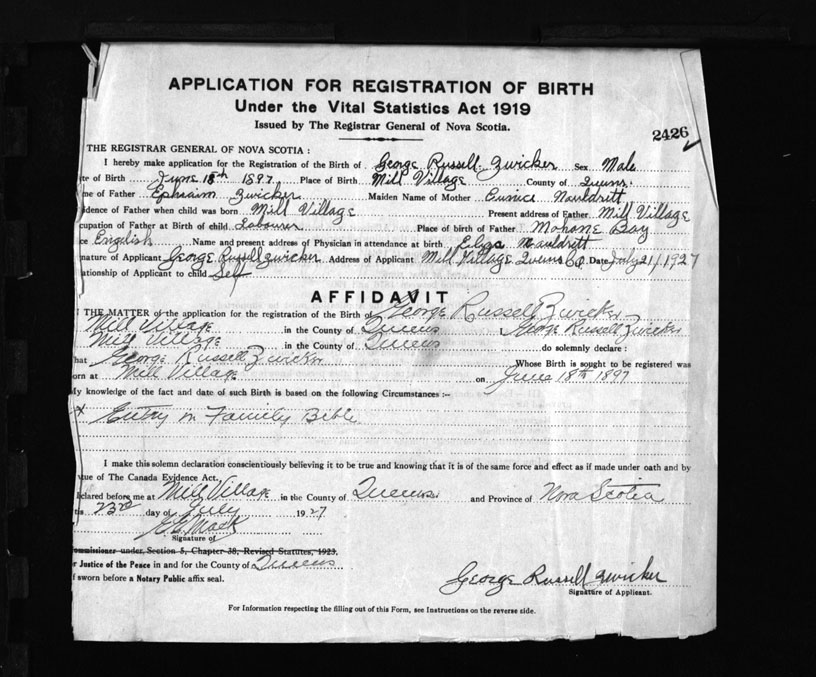 APPLICATION FOR REGISTRATION OF BIRTH
Under the Vital Statistics Act 1919
Issued by The Registrar General of Nova Scotia.
2426
THE REGISTRAR GENERAL OF NOVA SCOTIA :
I hereby make application for the Registration of the Birth of George Russell Zwicker Sex Male
te of Birth June 18th 1897 Place of Birth Mill Village County of Queens
me of Father Ephraim Zwicker Maiden Name of Mother Eunice
idence of Father when child was born Mill Village Present address of Father Mill Village
cupation of Father at Birth of child Labourer Place of birth of Father Mahone Bay
ce English Name and present address of Physician in attendance at birth
nature of Applicant George Russell Zwicker Address of Applicant Mill Village Queens Co Date July 21/1927
ationship of Applicant to child Self
AFFIDAVIT
THE MATTER of the application for the registration of the Birth of George Russell Zwicker
Mill Village in the County of Queens I, George Russell Zwicker
Mill Village in the County of Queens do solemnly declare :
hat George Russell Zwicker Whose Birth is sought to be registered was
orn at Mill Village on June 18th 1897
My knowledge of the fact and date of such Birth is based on the following Circumstances :—
x Entry in Family Bible
I make this solemn declaration conscientiously believing it to be true and knowing that it is of the same force and effect as if made under oath and by
tue of The Canada Evidence Act.
clared before me at Mill Village in the County of Queens and Province of Nova Scotia
is 23rd day of July 1927
E.E. Mack
Signature of
ommissioner under, Section 5, Chapter 38, Revised Statutes, 1923.
r Justice of the Peace in and for the County of Queens
f sworn before a Notary Public affix seal.
George Russell Zwicker
Signature of Applicant.
For Information respecting the filling out of this Form, see Instructions on the reverse side.